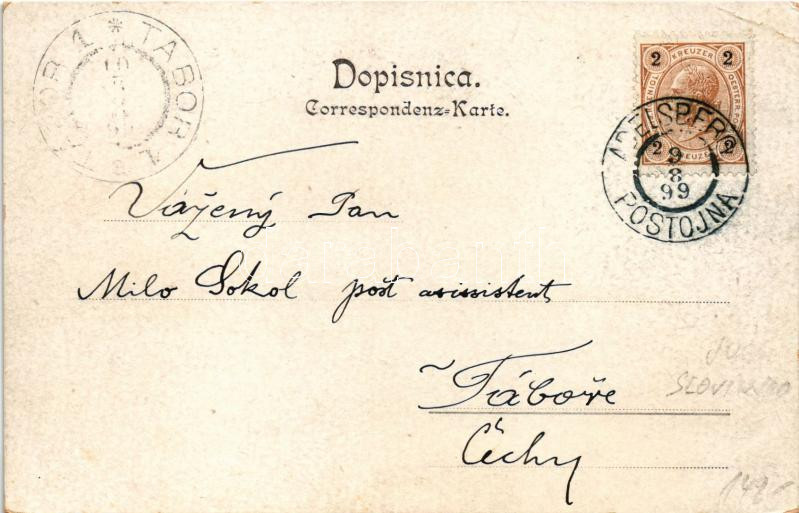 TABOR 1 * TABOR 1
Dopisnica.
Correspondenz=Karte.
2 KREUZER 2
2 KREUZER 2
ADELSBERG
9
8
99
POSTOJNA
Vážený Pan
Milo Sokol pošt asissistent
Táboře
Čechy
149-